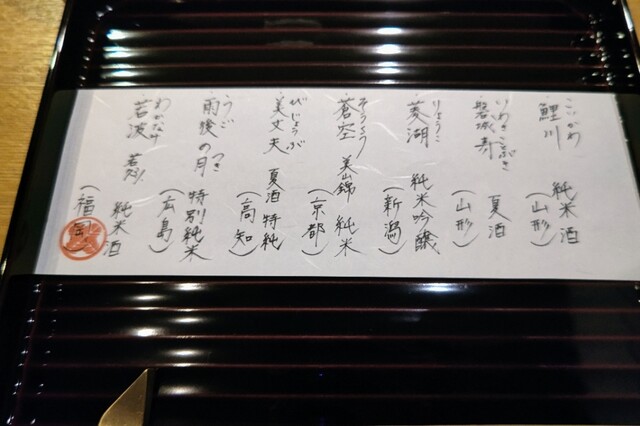 こいかわ
鯉川 純米酒
(山形)
いわきことぶき
磐城壽 夏酒
(山形)
りょうこ
菱湖 純米吟醸
(新潟)
そうくう
蒼空 美山錦 純米
(京都)
びじょうぶ
美丈夫 夏酒 特純
(高知)
うご つき
雨後の月 特別純米
(広島)
わかなみ
若波 純米酒
(福岡)